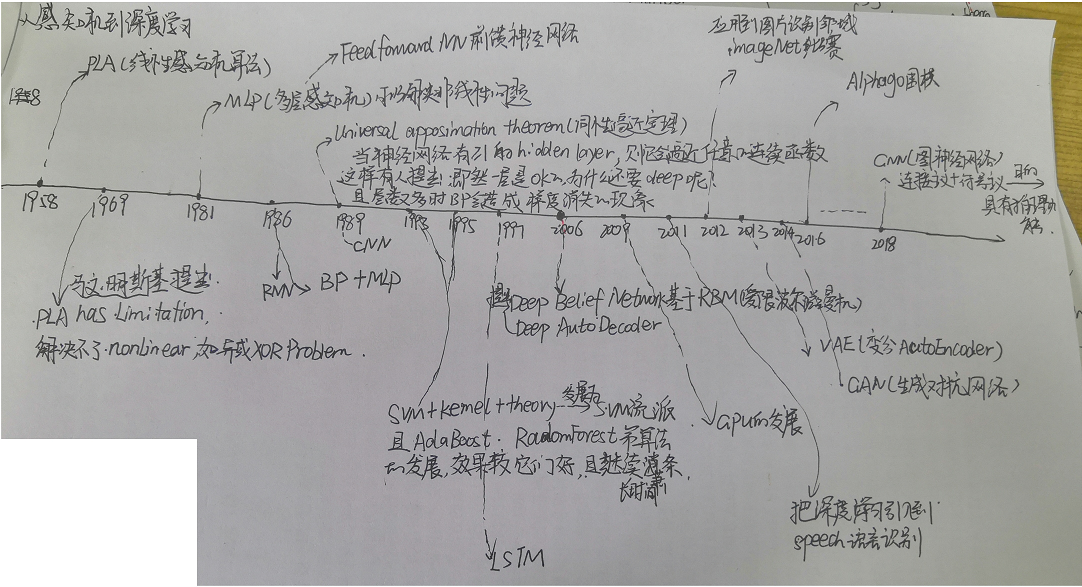 从感知机到深度学习
PLA(线性感知机算法)
1958
Feedforward NN 前馈神经网络
MLP(多层感知机)可以解决非线性问题
应用到图片识别领域
imageNet比赛
Alphago围棋
Universal appoximation theorem(同性逼近定理)
当神经网络有1层的hidden layer,则会逼近任意的连续函数
这样有人提出:既然一层是ok的,为什么还要deep呢?
且层数多时BP会造成梯度消失的现象
GNN(图神经网络)
连接主义+符号主义
目的
具有推理功能
1958 1969 1981 1986 1989 1993 1995 1997 2006 2009 2011 2012 2013 2014 2016 2018
CNN
RNN BP+MLP
马文·明斯基提出
PLA has Limitation,
解决不了nonlinear,如异或XOR Problem.
提出 Deep Belief Network基于RBM(受限波尔滋曼机)
Deep AutoDecoder
VAE(变分AutoEncoder)
GAN(生成对抗网络)
SVM+kernel+theory 发展为 SVM流派
且AdaBoost. RadomForest等算法
的发展,效果较它们好,且继续萧条
长时
GPU的发展
把深度学习引到
speech语音识别
LSTM